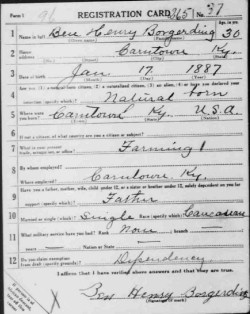 Form 1 REGISTRATION CARD 265 No. 37
1 Name in full Ben Henry Borgerding Age, in yrs. 30
2 Home address Camtown Ky.
3 Date of birth Jan 17 1887
4 Are you (1) a natural-born citizen, (2) a naturalized citizen, (3) an alien, (4) or have you declared your intention (specify which)? Natural born
5 Where were you born? Camtown Ky. U.S.A.
6 If not a citizen, of what country are you a citizen or subject?
7 What is your present trade, occupation, or office? Farming 1
8 By whom employed?
Where employed? Camtown, Ky.
9 Have you a father, mother, wife, child under 12, or a sister or brother under 12, solely dependent on you for support (specify which)? Father
10 Married or single (which)? Single Race (specify which)? Caucasian
11 What military service have you had? Rank None branch
years Nation or State
12 Do you claim exemption from draft (specify grounds)? Dependency
I affirm that I have verified above answers and that they are true.
Ben Henry Borgerding